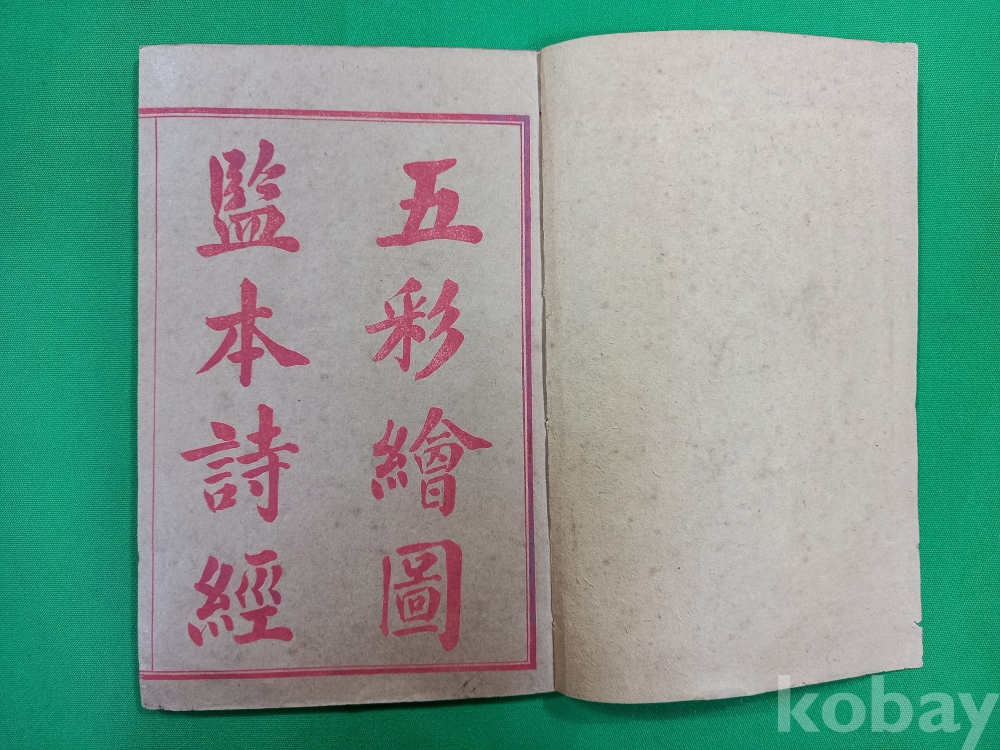 五彩繪圖
監本詩經
kobay